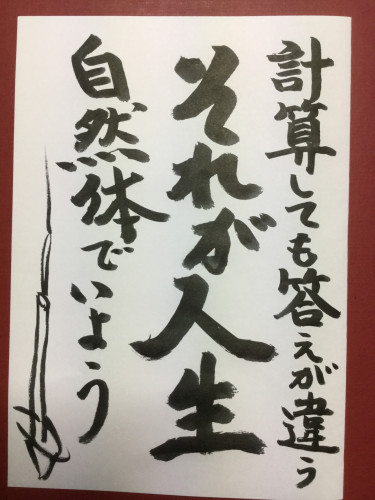 計算しても答えが違う
それが人生
自然体でいよう